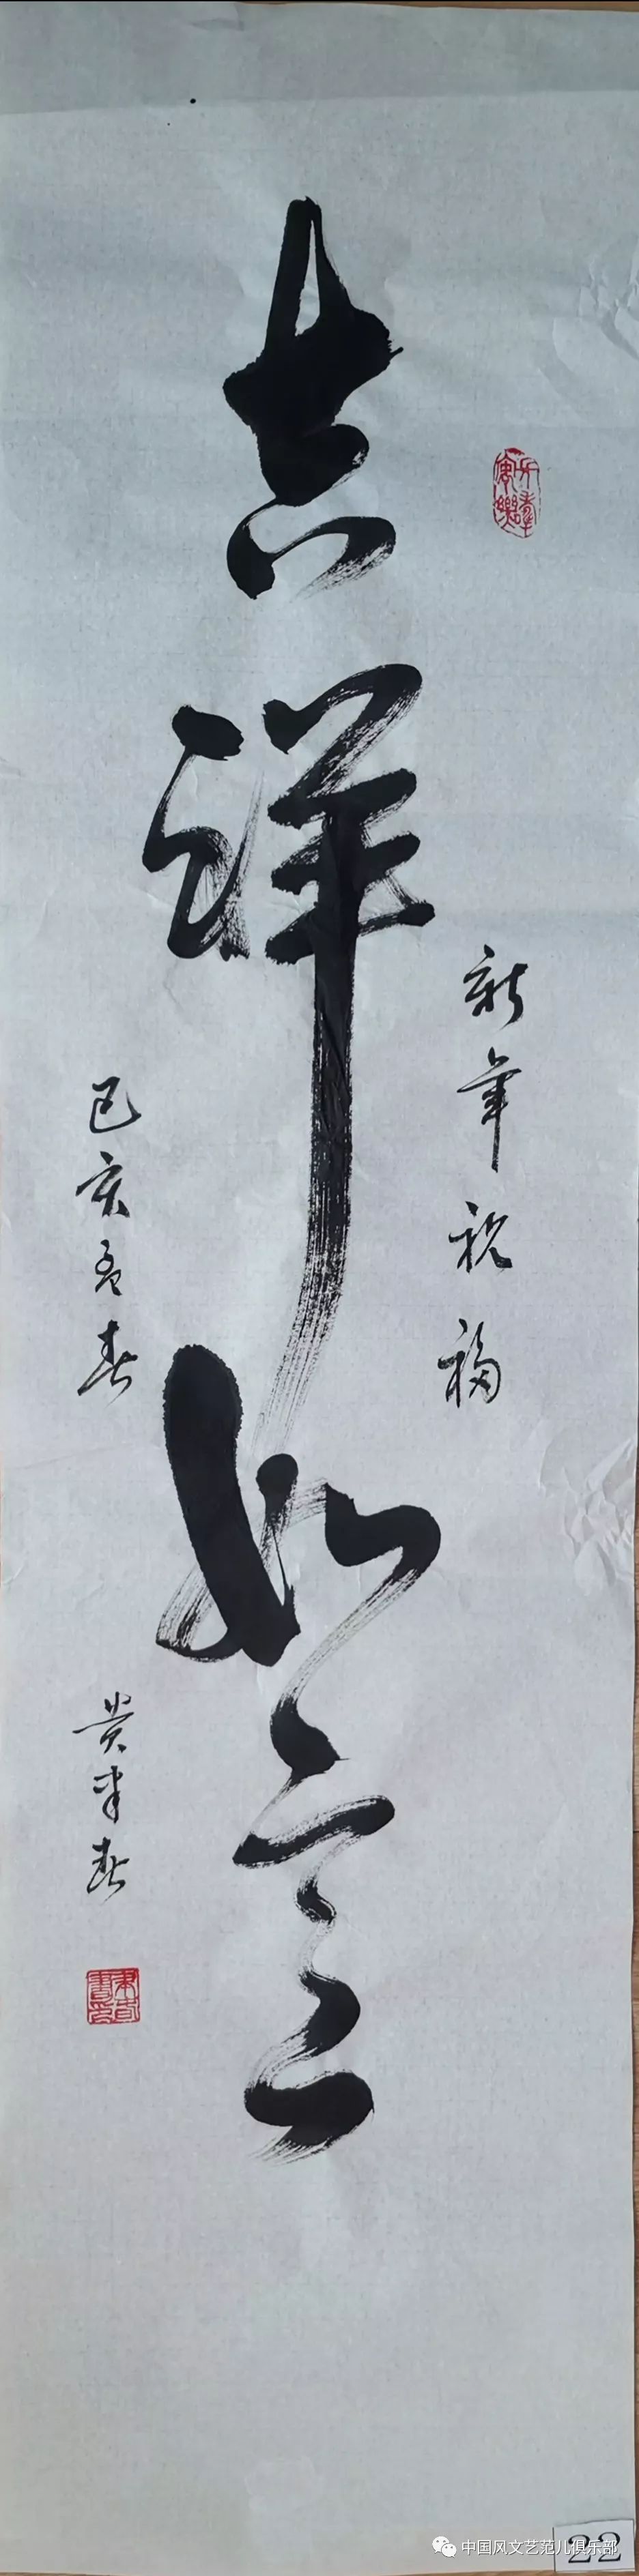 吉祥如意
新年祝福
己亥孟春
贵来春
中国风文艺范儿俱乐部
22